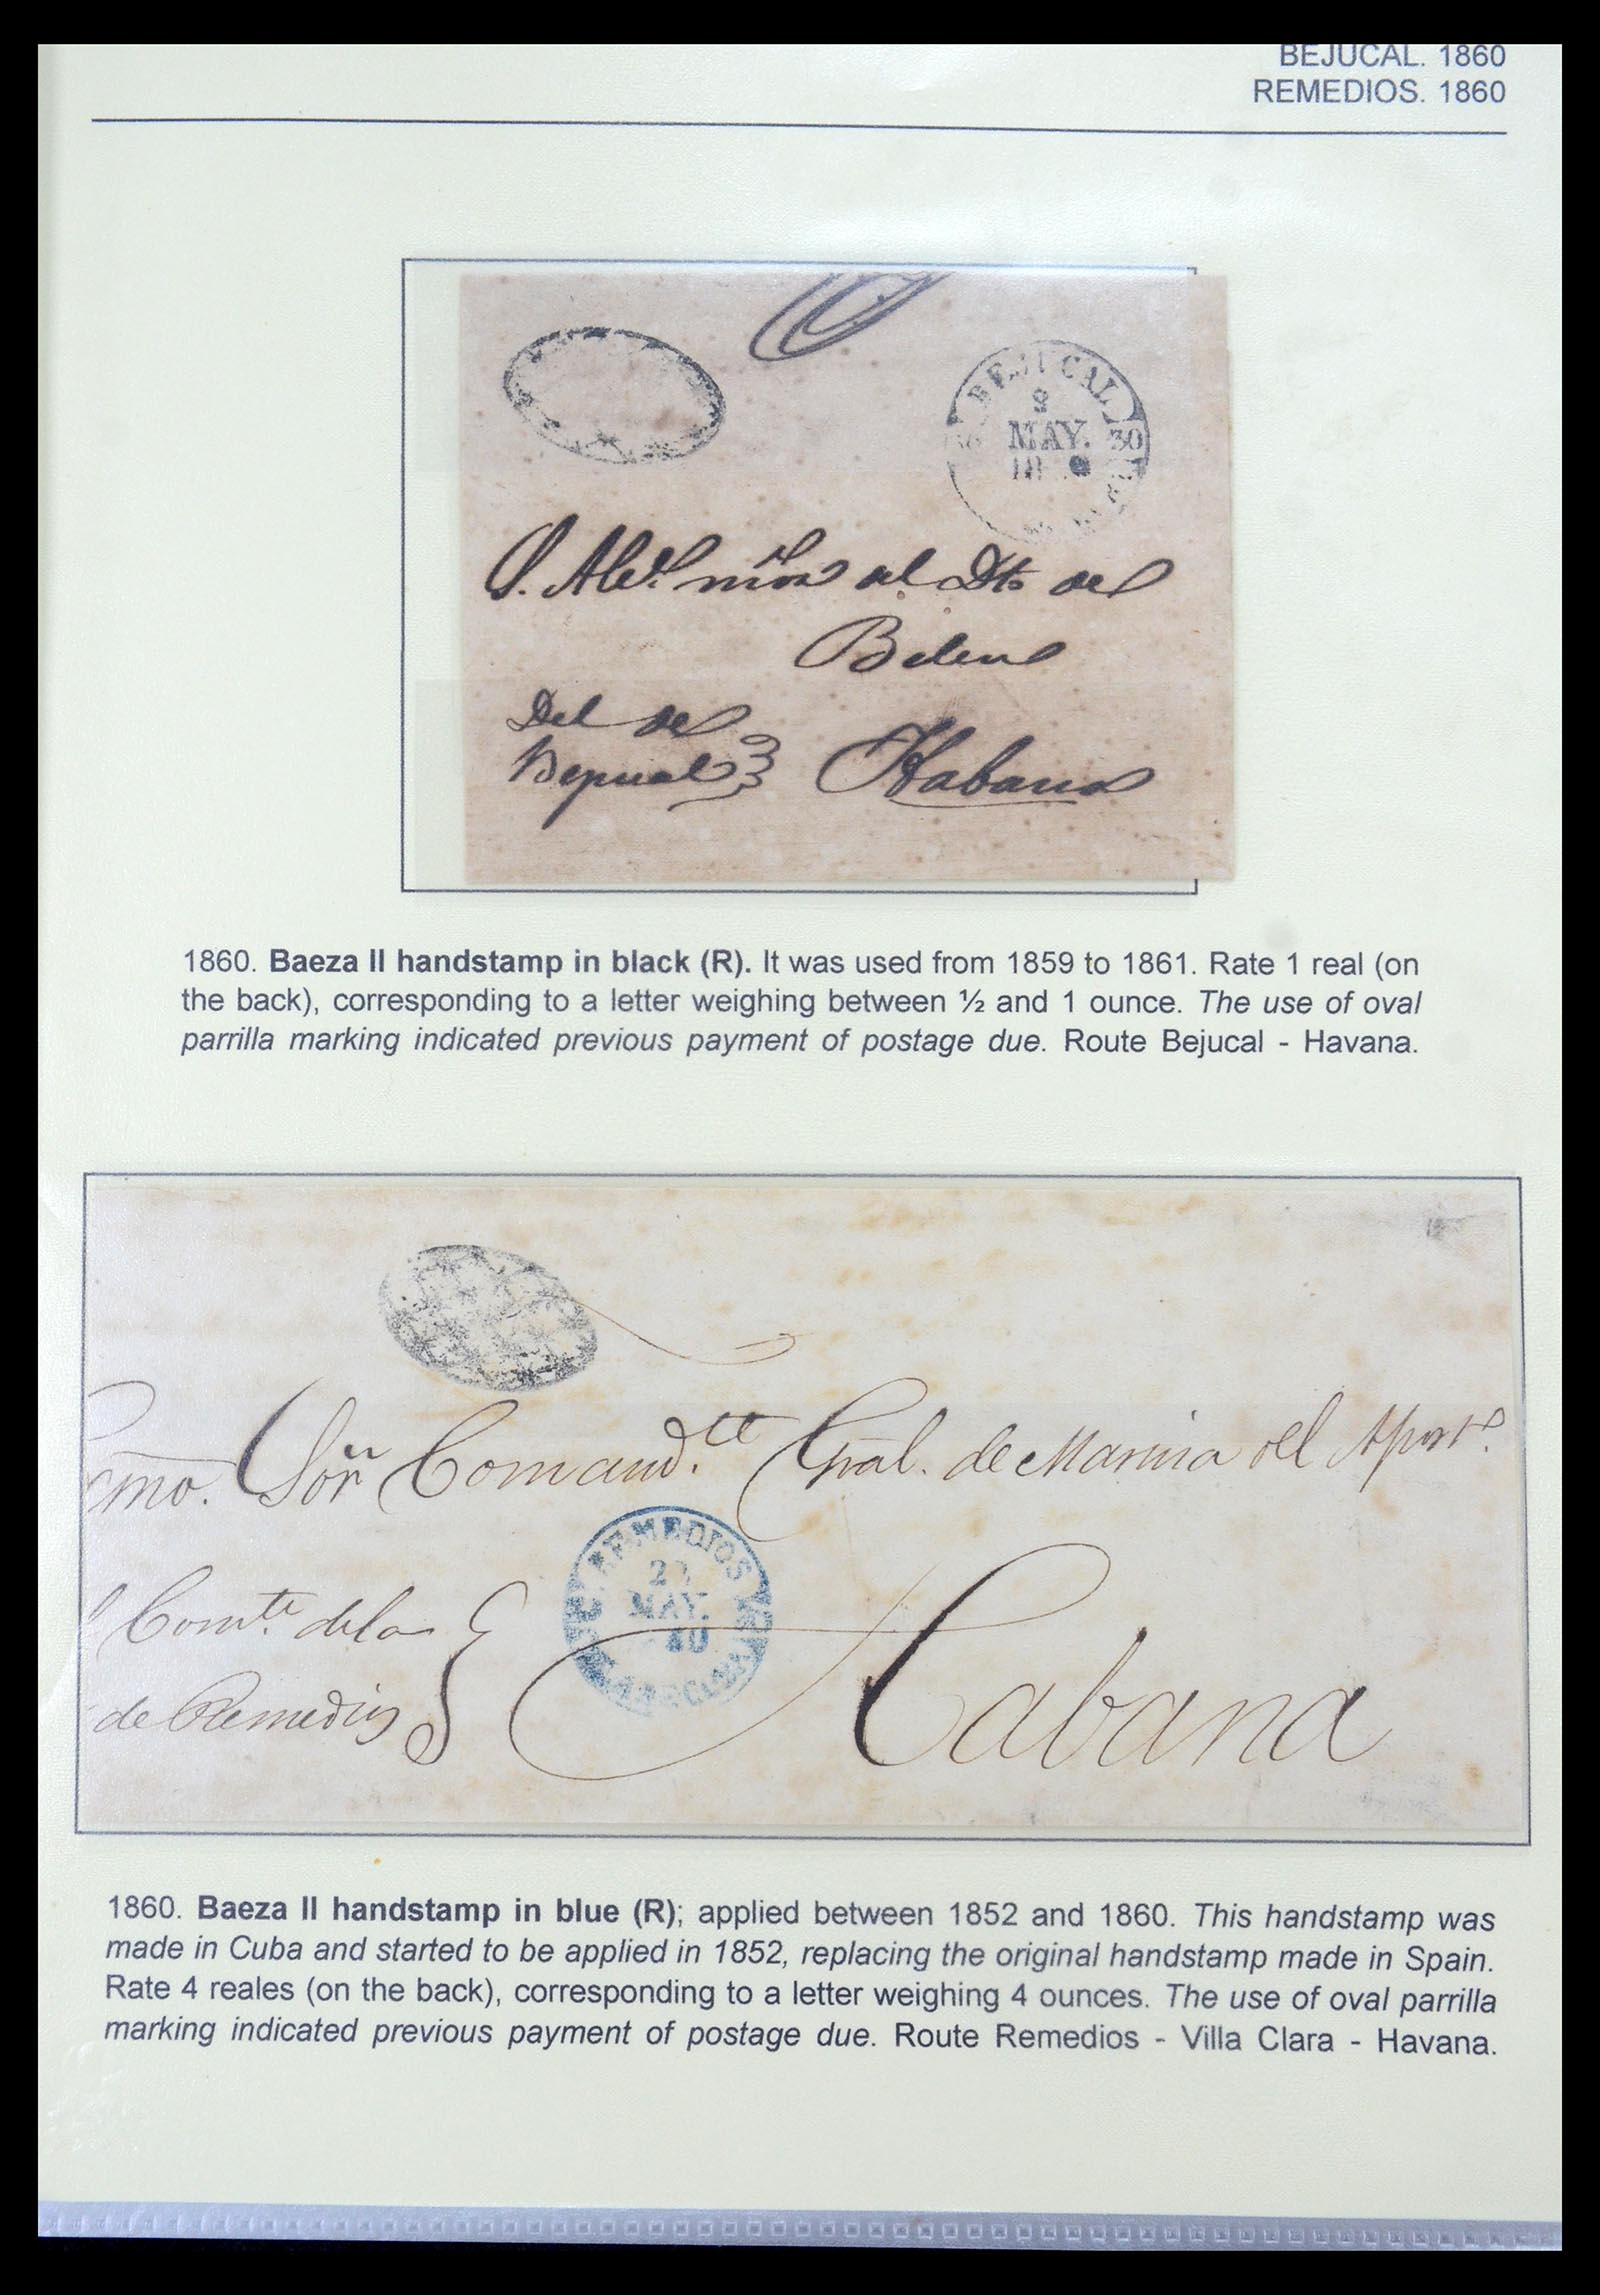 BEJUCAL. 1860
REMEDIOS. 1860
BEJUCAL
MAY.
30
al Dto del
Belen
Del de
Bejucal
Habana
1860. Baeza II handstamp in black (R). It was used from 1859 to 1861. Rate 1 real (on
the back), corresponding to a letter weighing between ½ and 1 ounce. The use of oval
parrilla marking indicated previous payment of postage due. Route Bejucal - Havana.
Sor Comand.te Gral. de Marina del Apost.o
REMEDIOS
MAY.
Comte. dela
de Remedios
Habana
1860. Baeza II handstamp in blue (R); applied between 1852 and 1860. This handstamp was
made in Cuba and started to be applied in 1852, replacing the original handstamp made in Spain.
Rate 4 reales (on the back), corresponding to a letter weighing 4 ounces. The use of oval parrilla
marking indicated previous payment of postage due. Route Remedios - Villa Clara - Havana.